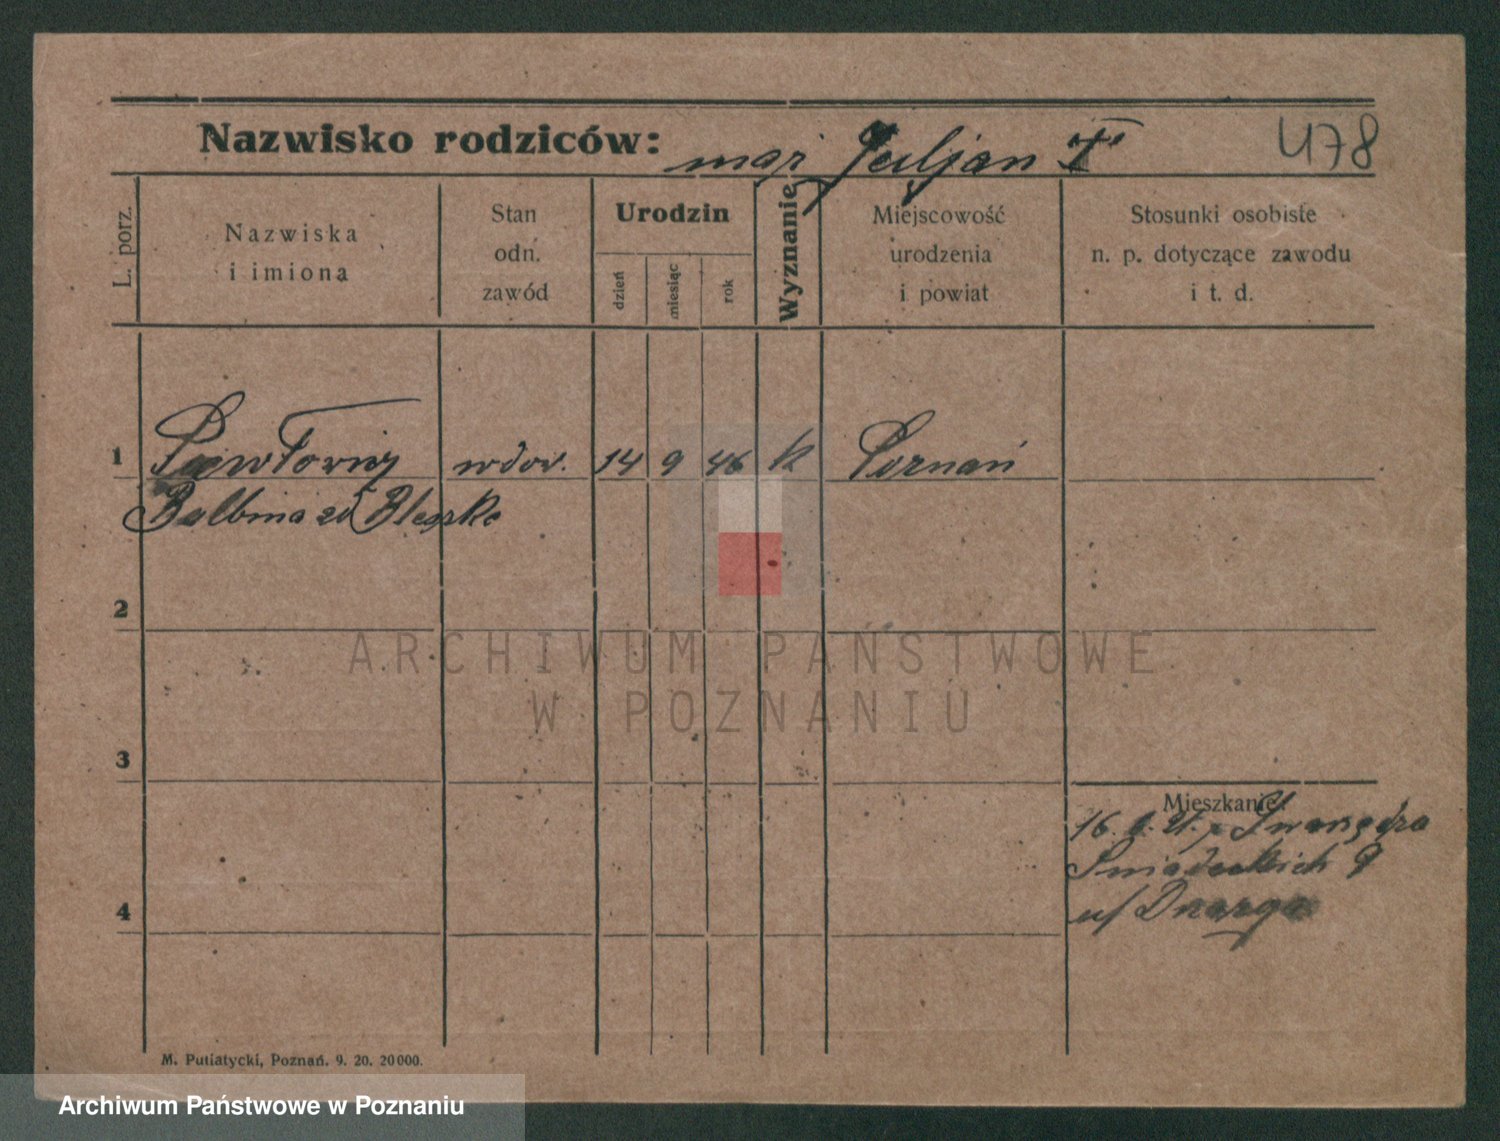 Nazwisko rodziców: maż Juljan F 478
L. porz.
Nazwiska
i imiona
Stan
odn.
zawód
Urodzin
dzień
miesiąc
rok
Wyznanie
Miejscowość
urodzenia
i powiat
Stosunki osobiste
n. p. dotyczące zawodu
i t. d.
1 wdow. 14 9 46 k Poznań
Balbina
2
ARCHIWUM PAŃSTWOWE
W POZNANIU
3
Mieszkanie
16. Swarzędza
Śniadeckich 9
4
M. Putiatycki, Poznań. 9. 20. 20000.
Archiwum Państwowe w Poznaniu